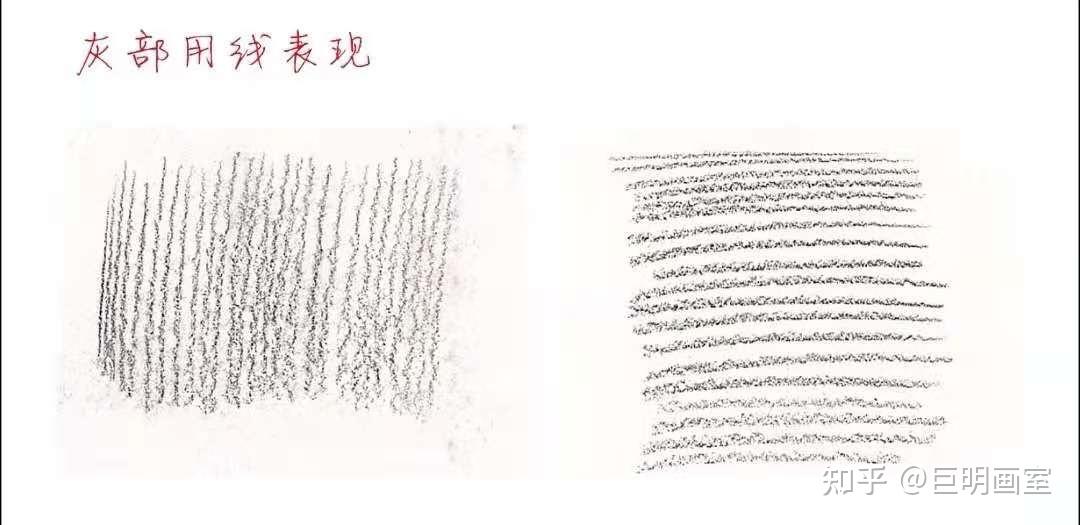 灰部用线表现
知乎 @巨明画室